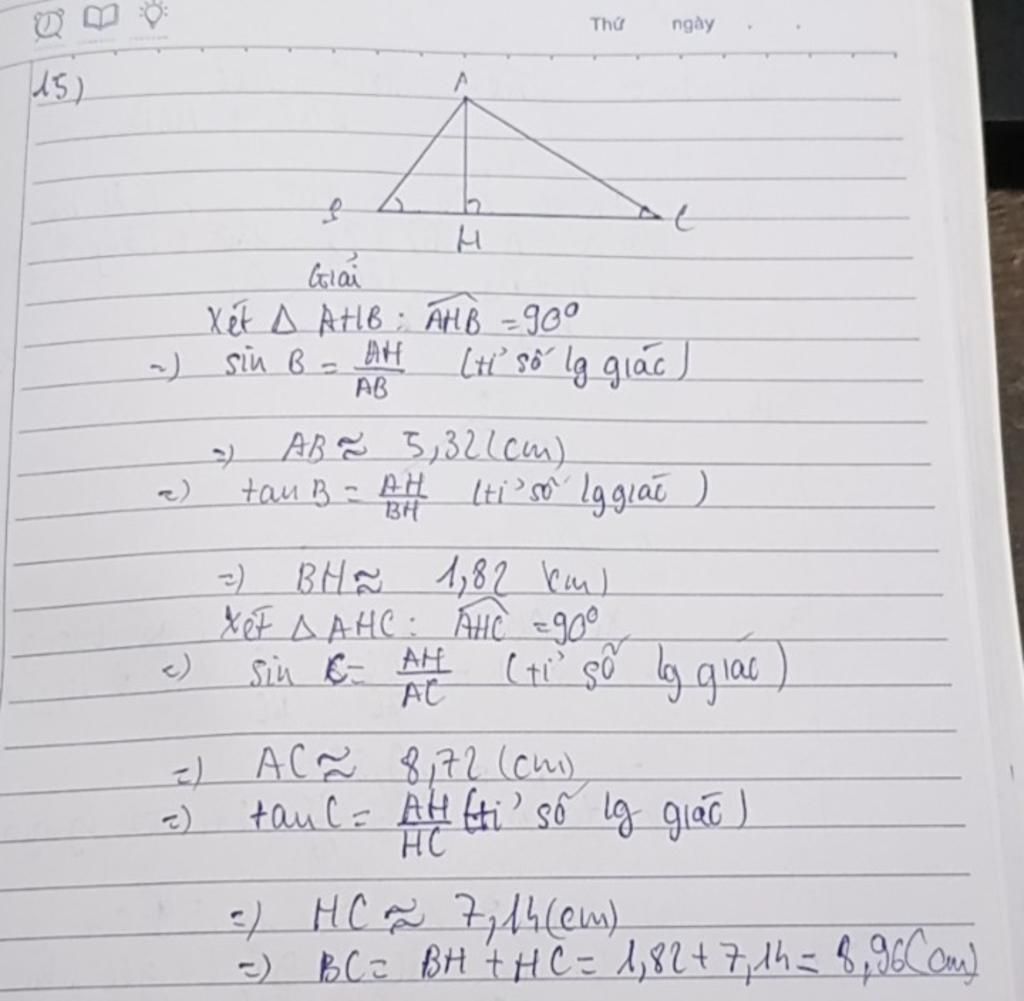 Thứ ngày . .
15)
A
B H C
Giải
Xét Δ AHB : AHB = 90°
=) sin B = AH/AB (tỉ số lg giác)
=) AB ≈ 5,32 (cm)
=) tan B = AH/BH (tỉ số lg giác)
=) BH ≈ 1,82 (cm)
Xét Δ AHC : AHC = 90°
=) sin C = AH/AC (tỉ số lg giác)
=) AC ≈ 8,72 (cm)
=) tan C = AH/HC (tỉ số lg giác)
=) HC ≈ 7,14 (cm)
=) BC = BH + HC = 1,82 + 7,14 = 8,96 (cm)